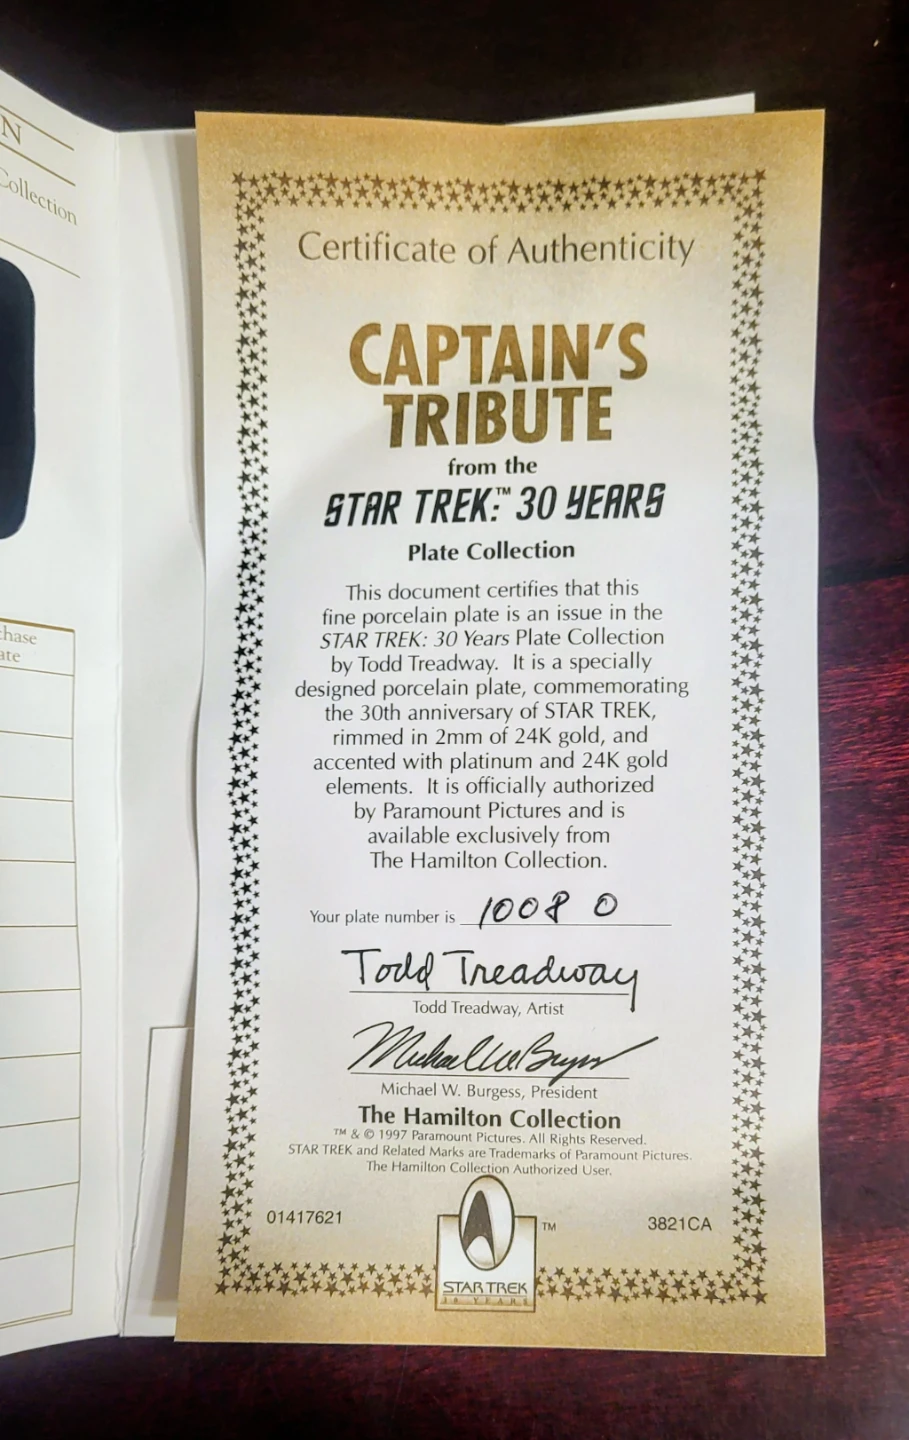 N
Collection
chase
ate
Certificate of Authenticity
CAPTAIN'S
TRIBUTE
from the
STAR TREK:™ 30 YEARS
Plate Collection
This document certifies that this
fine porcelain plate is an issue in the
STAR TREK: 30 Years Plate Collection
by Todd Treadway. It is a specially
designed porcelain plate, commemorating
the 30th anniversary of STAR TREK,
rimmed in 2mm of 24K gold, and
accented with platinum and 24K gold
elements. It is officially authorized
by Paramount Pictures and is
available exclusively from
The Hamilton Collection.
Your plate number is 1008 0
Todd Treadway
Todd Treadway, Artist
Michael W. Burgess
Michael W. Burgess, President
The Hamilton Collection
™ & © 1997 Paramount Pictures. All Rights Reserved.
STAR TREK and Related Marks are Trademarks of Paramount Pictures.
The Hamilton Collection Authorized User.
01417621
TM
3821CA
STAR TREK
30 YEARS